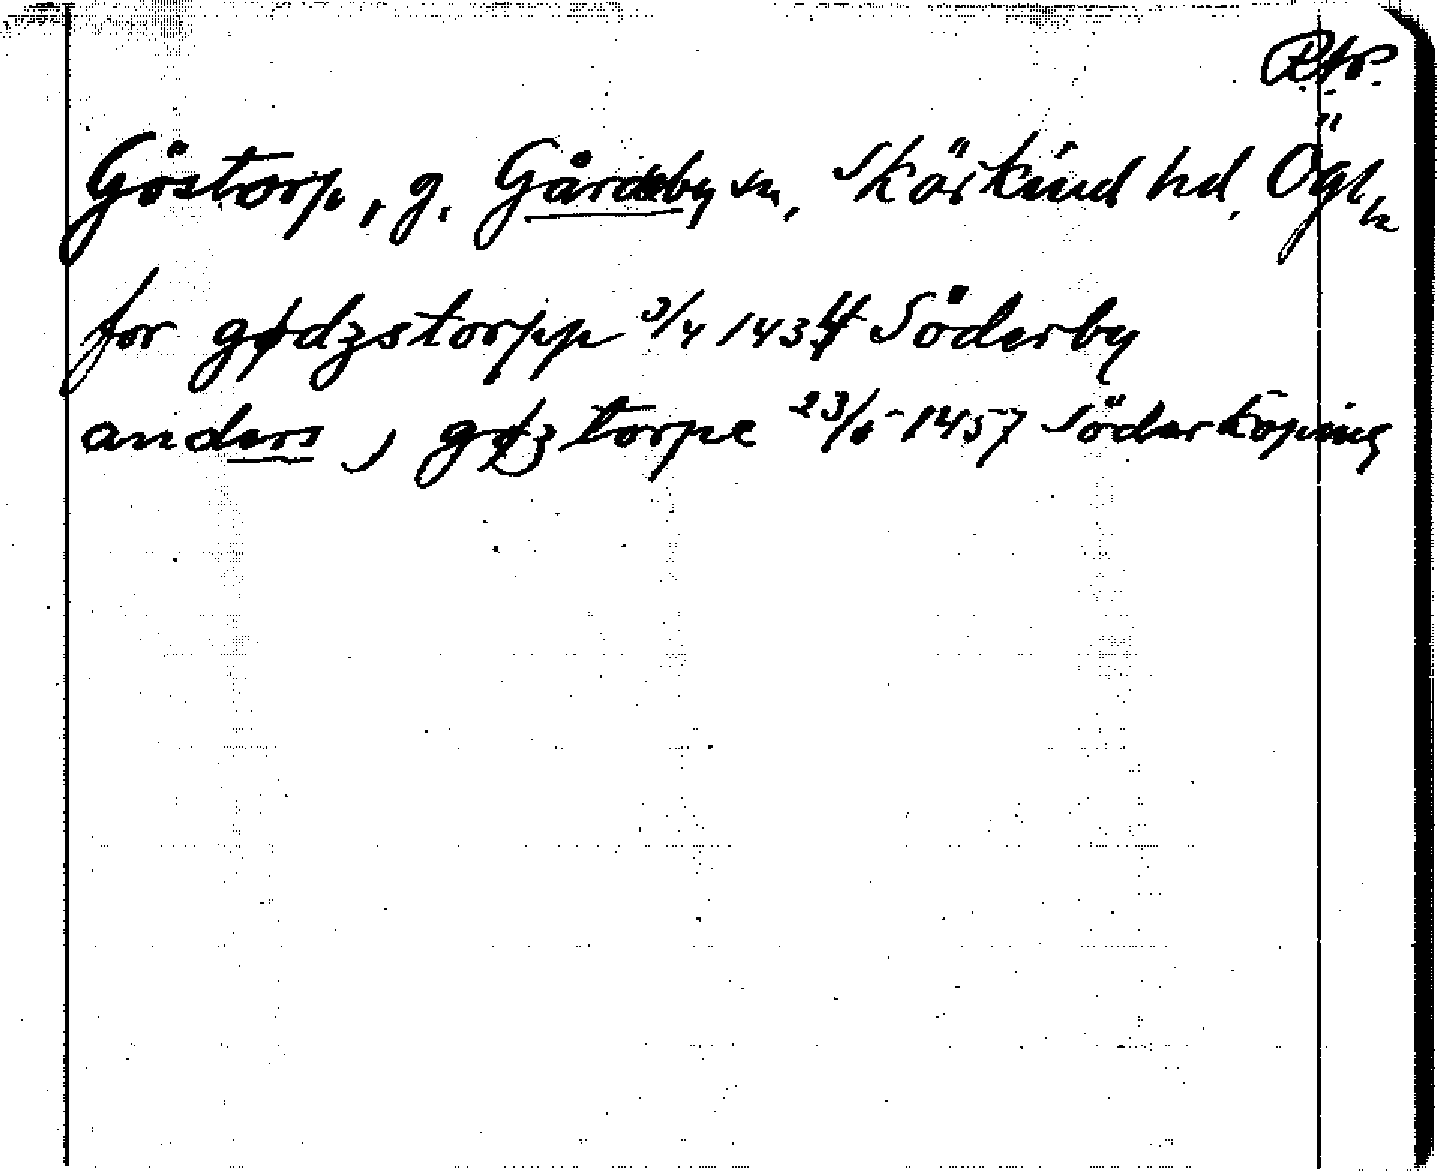 Göstorp, g. Gårdeby sn, Skärkind hd, Ögl
for gødzstorpp 3/4 1434 Söderby
anders i gøztorpe 23/6 1457 Söderköping